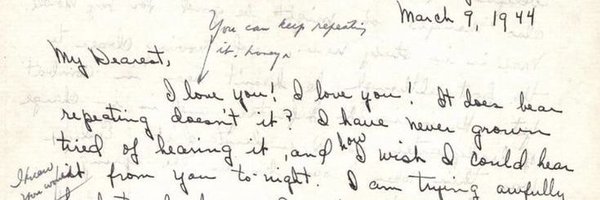 March 9, 1944
You can keep repeating
it. honey
My Dearest,
I love you! I love you! It does bear
repeating doesn't it? I have never grown
tired of hearing it, and how I wish I could hear
I know
you would
it from you to-night. I am trying awfully